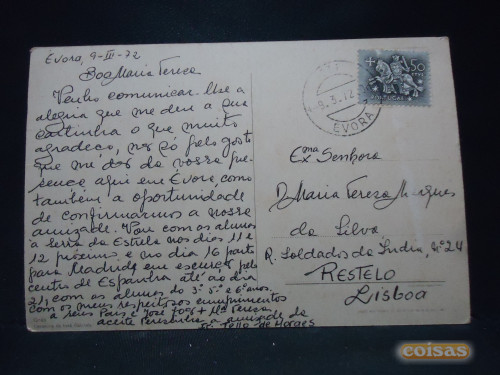 Évora, 9-III-72
Boa Maria Tereza
Venho comunicar-lhe a
alegria que me deu a sua
cartinha o que muito
agradeço, não só pelo gosto
que me dás da vossa pre-
sença aqui em Évora, como
também a oportunidade
de confirmarmos a nossa
amizade. Vou com os alunos
à Serra da Estrela nos dias 11 e
12 próximos e no dia 16 parto
para Madrid em escursão pelo
centro de Espanha até ao dia
21, com os alunos do 3º 5º e 6º anos.
com os meus respeitosos cumprimentos
a seus Pais e José João + Mª Teresa
aceite a amizade do
Tello de Moraes
1$50
PORTUGAL
-9.3.72
ÉVORA
Exma Senhora
D. Maria Tereza Marques
da Silva
R. Soldados da India, nº 24
RESTELO
Lisboa
coisas